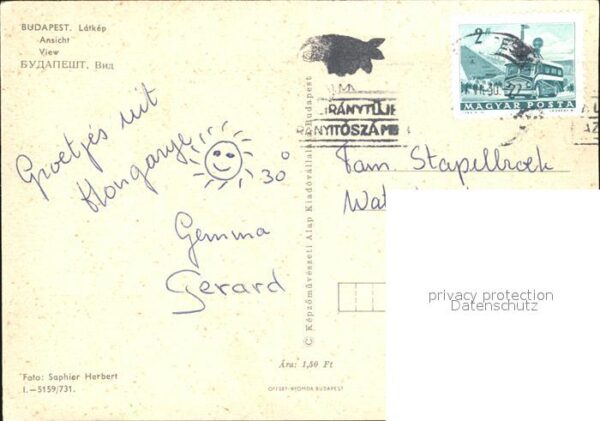 BUDAPEST. Látkép
Ansicht
View
БУДАПЕШТ. Вид
Groetjes uit
Hongarye
30°
Gemma
Gerard
Foto: Saphier Herbert
I.—5159/731.
© Képzőművészeti Alap Kiadóvállalata, Budapest
Ára: 1,50 Ft
OFFSET-NYOMDA BUDAPEST
2 Ft
MAGYAR POSTA
IRÁNYTŰJE
IRÁNYÍTÓSZÁM
Fam. Stapelbroek
privacy protection
Datenschutz